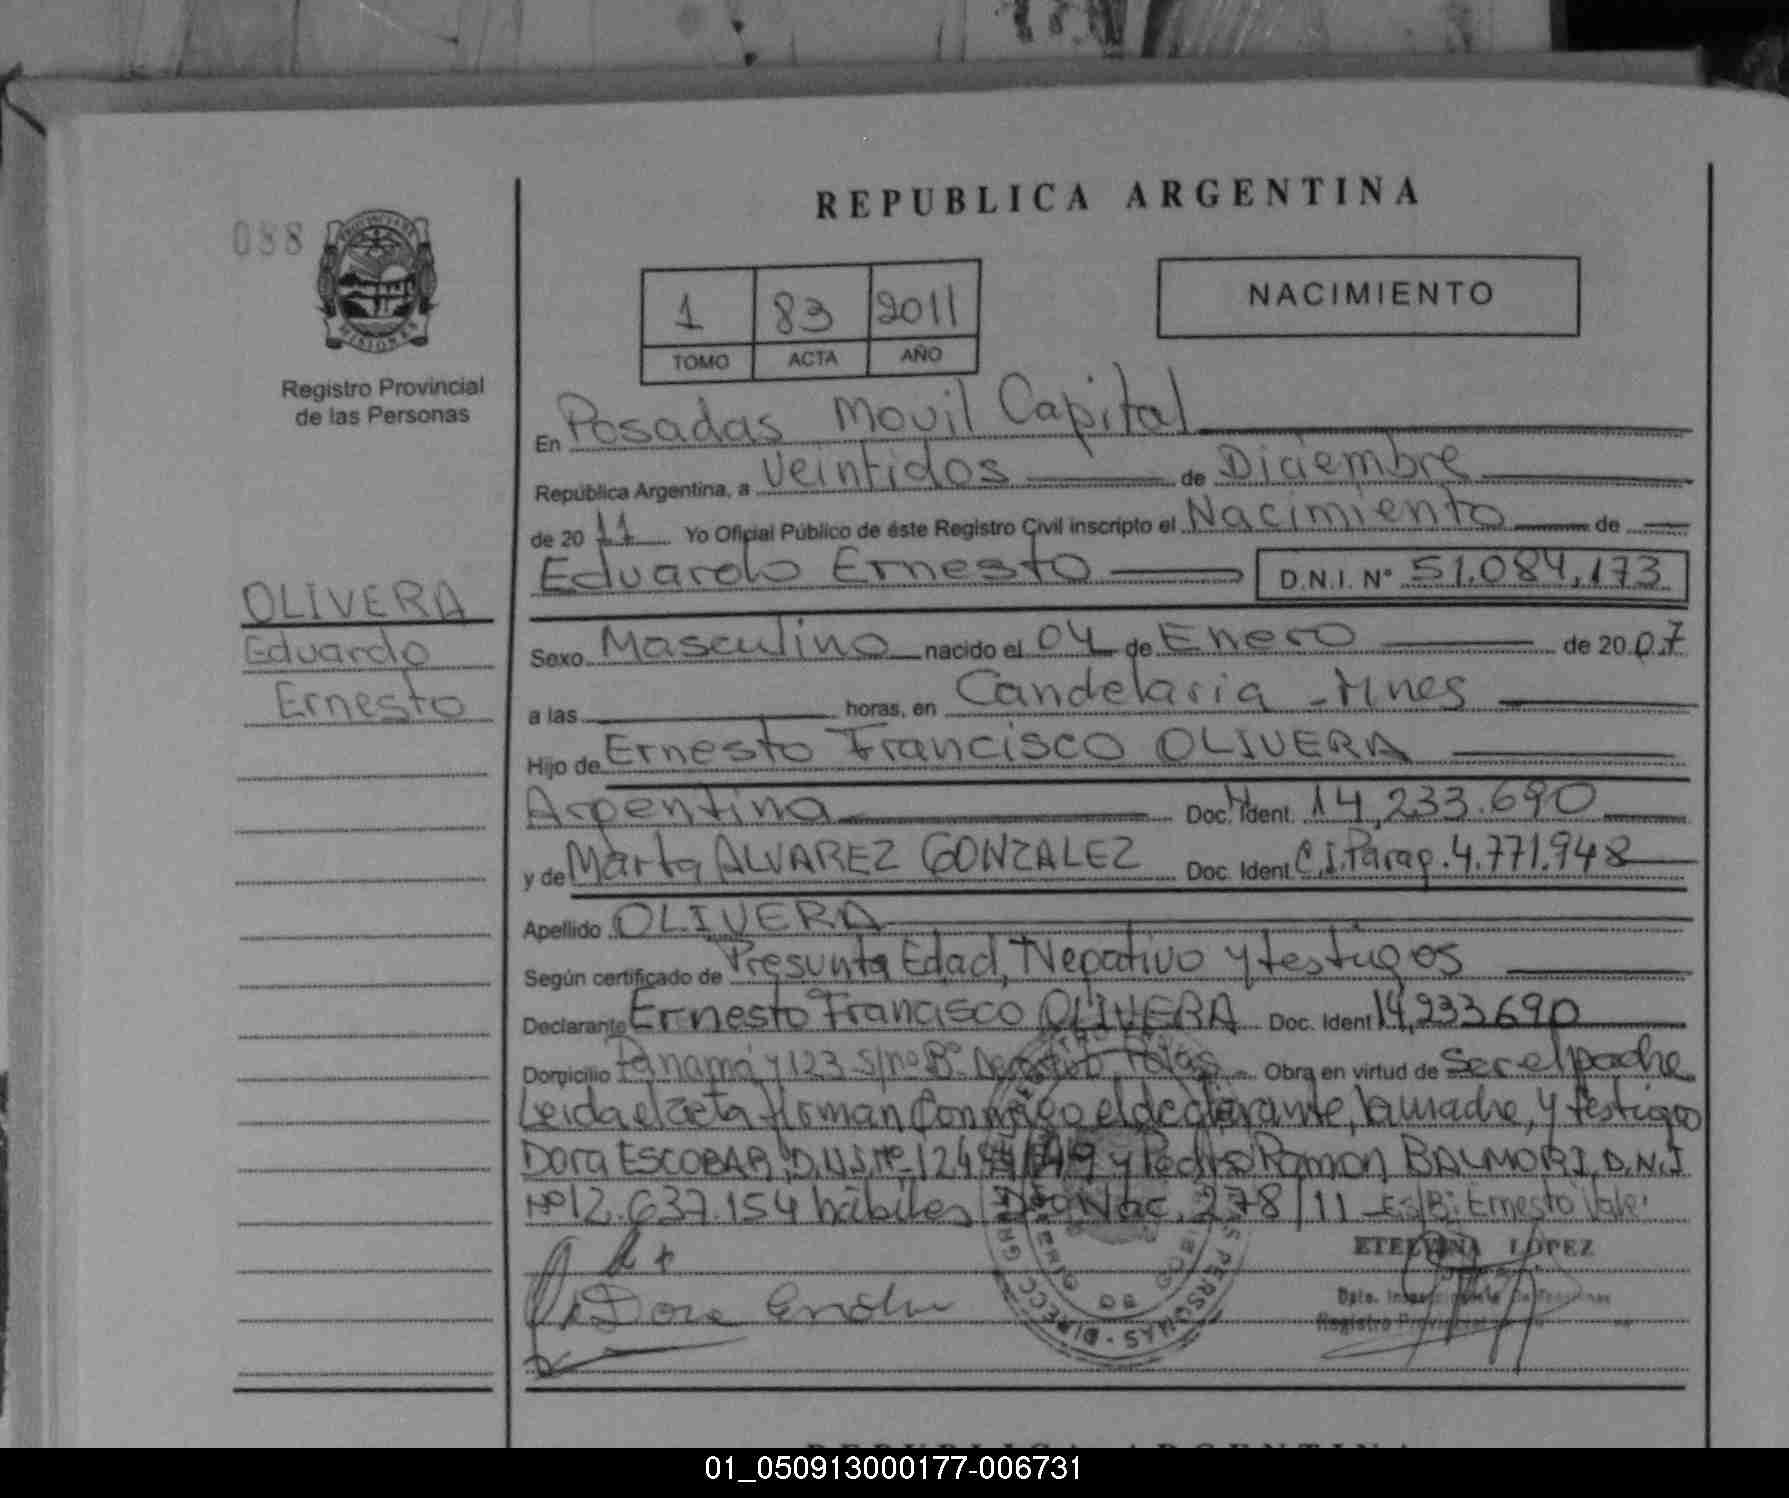 REPUBLICA ARGENTINA
088
PROVINCIA DE
MISIONES
Registro Provincial
de las Personas
1 83 2011
TOMO ACTA AÑO
NACIMIENTO
En Posadas Movil Capital
República Argentina, a Veintidos de Diciembre
de 20 11 Yo Oficial Público de éste Registro Civil inscripto el Nacimiento de
Eduardo Ernesto D.N.I. N° 51.084.173
OLIVERA
Eduardo
Ernesto
Sexo Masculino nacido el 04 de Enero de 2007
a las horas, en Candelaria - Mnes
Hijo de Ernesto Francisco OLIVERA
Argentina Doc. Ident. 14,233.690
y de Marta ALVAREZ GONZALEZ Doc. Ident C.I. Parag. 4.771.948
Apellido OLIVERA
Según certificado de Presunta Edad, Negativo y testigos
Declarante Ernesto Francisco OLIVERA Doc. Ident 14,233690
Domicilio Panamá y 123 s/nº Bº Obra en virtud de Ser el padre
Leida el acta firman Conmigo el declarante, la madre, y testigos
Dora ESCOBAR, D.N.I. Nº y Pedro Ramon BALMORI, D.N.I
Nº 12.637.154 hábiles Dto Nac. 278/11 - Es/B: Ernesto Vale.
ETELVINA LOPEZ
Registro
Dora
PERSONAS - DIRECC GRAL
01_050913000177-006731